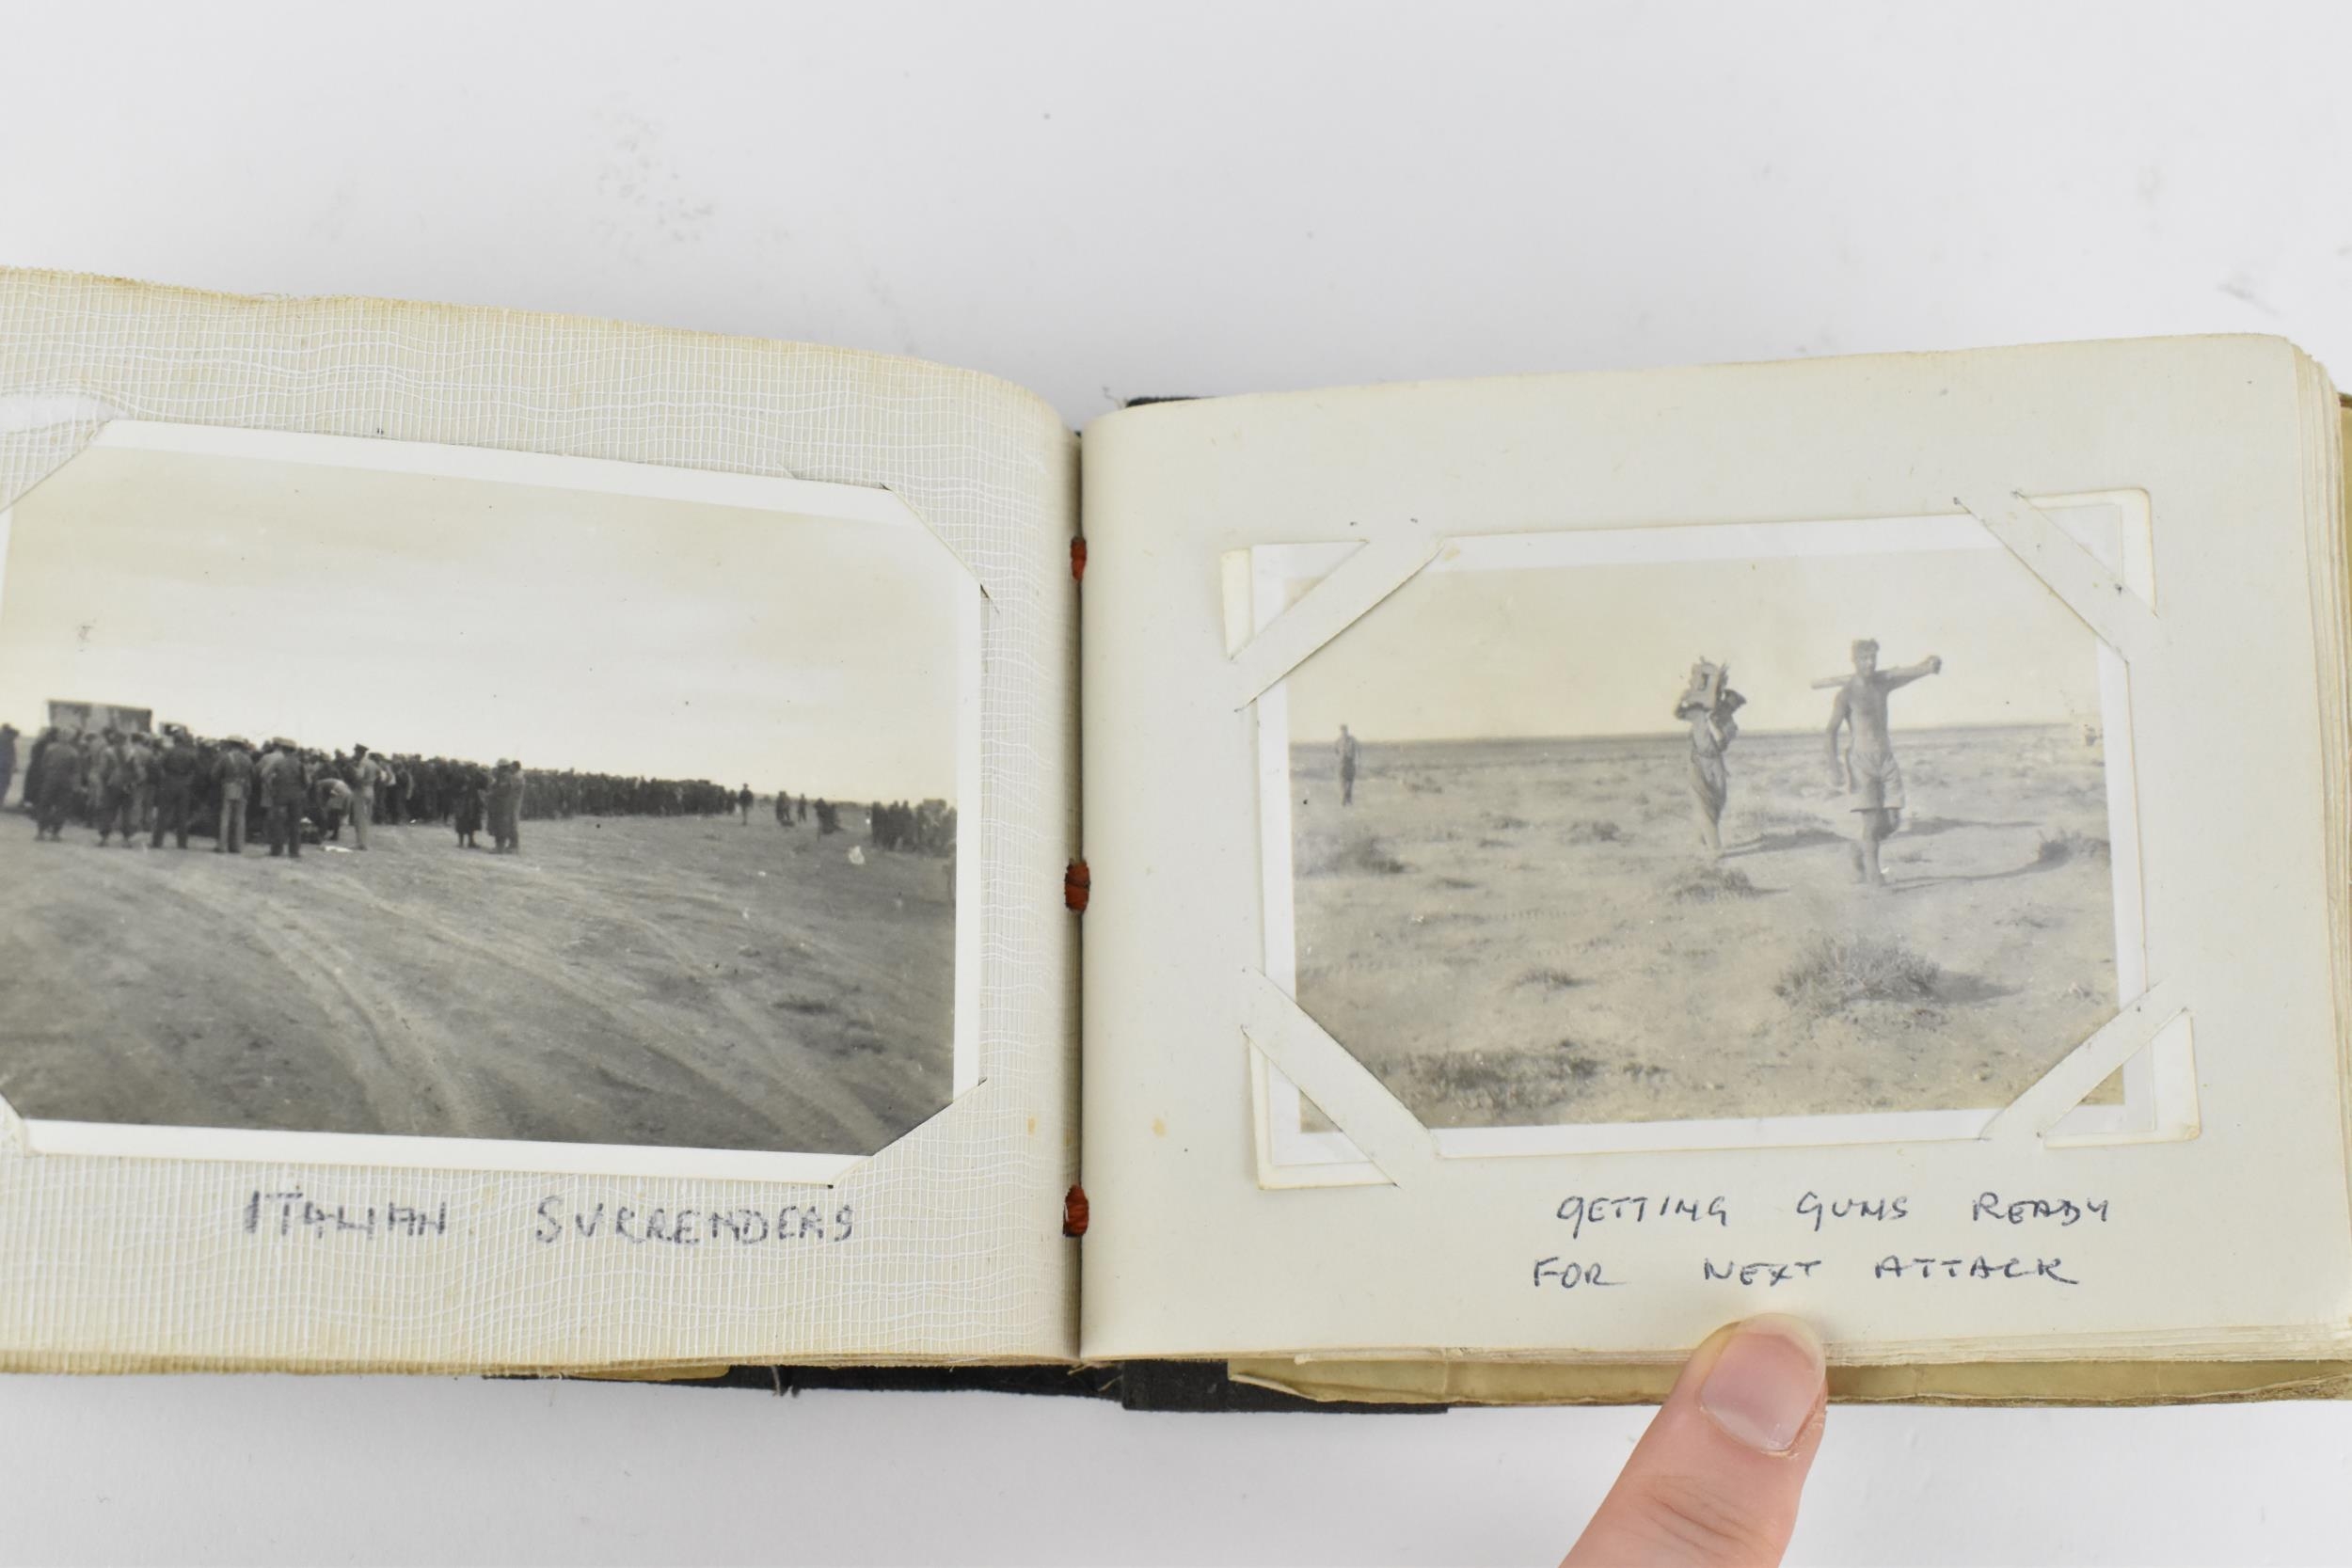 ITALIAN SURRENDERS
GETTING GUNS READY
FOR NEXT ATTACK